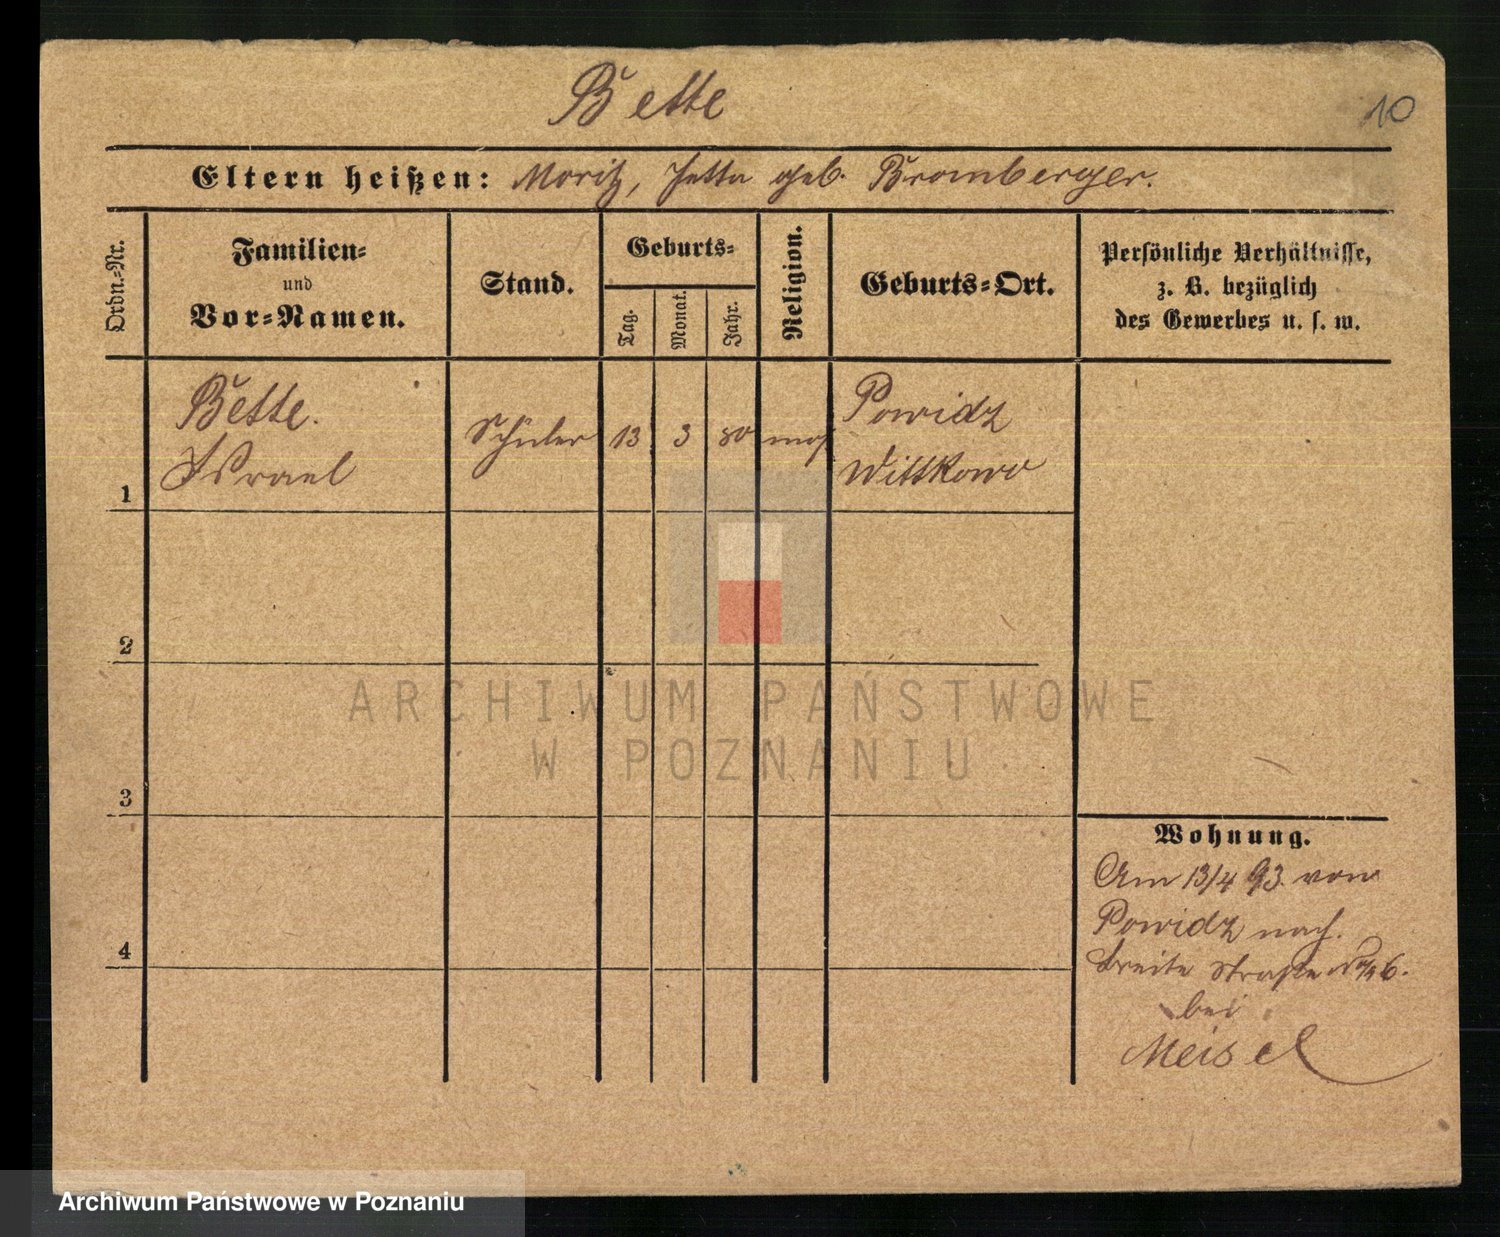 Bette
10
Eltern heißen: Moritz, Jetta geb. Bromberger.
Ordn.-Nr.
Familien-
und
Vor-Namen.
Stand.
Geburts-
Tag.
Monat.
Jahr.
Religion.
Geburts-Ort.
Persönliche Verhältnisse,
z. B. bezüglich
des Gewerbes u. s. w.
1
Bette.
Israel
Schüler
13
3
80
mos
Powidz
Wittkowo
2
3
4
Wohnung.
Am 13/4 93 von
Powidz nach
breite Straße 6.
bei
Meisel
ARCHIWUM PAŃSTWOWE
W POZNANIU
Archiwum Państwowe w Poznaniu